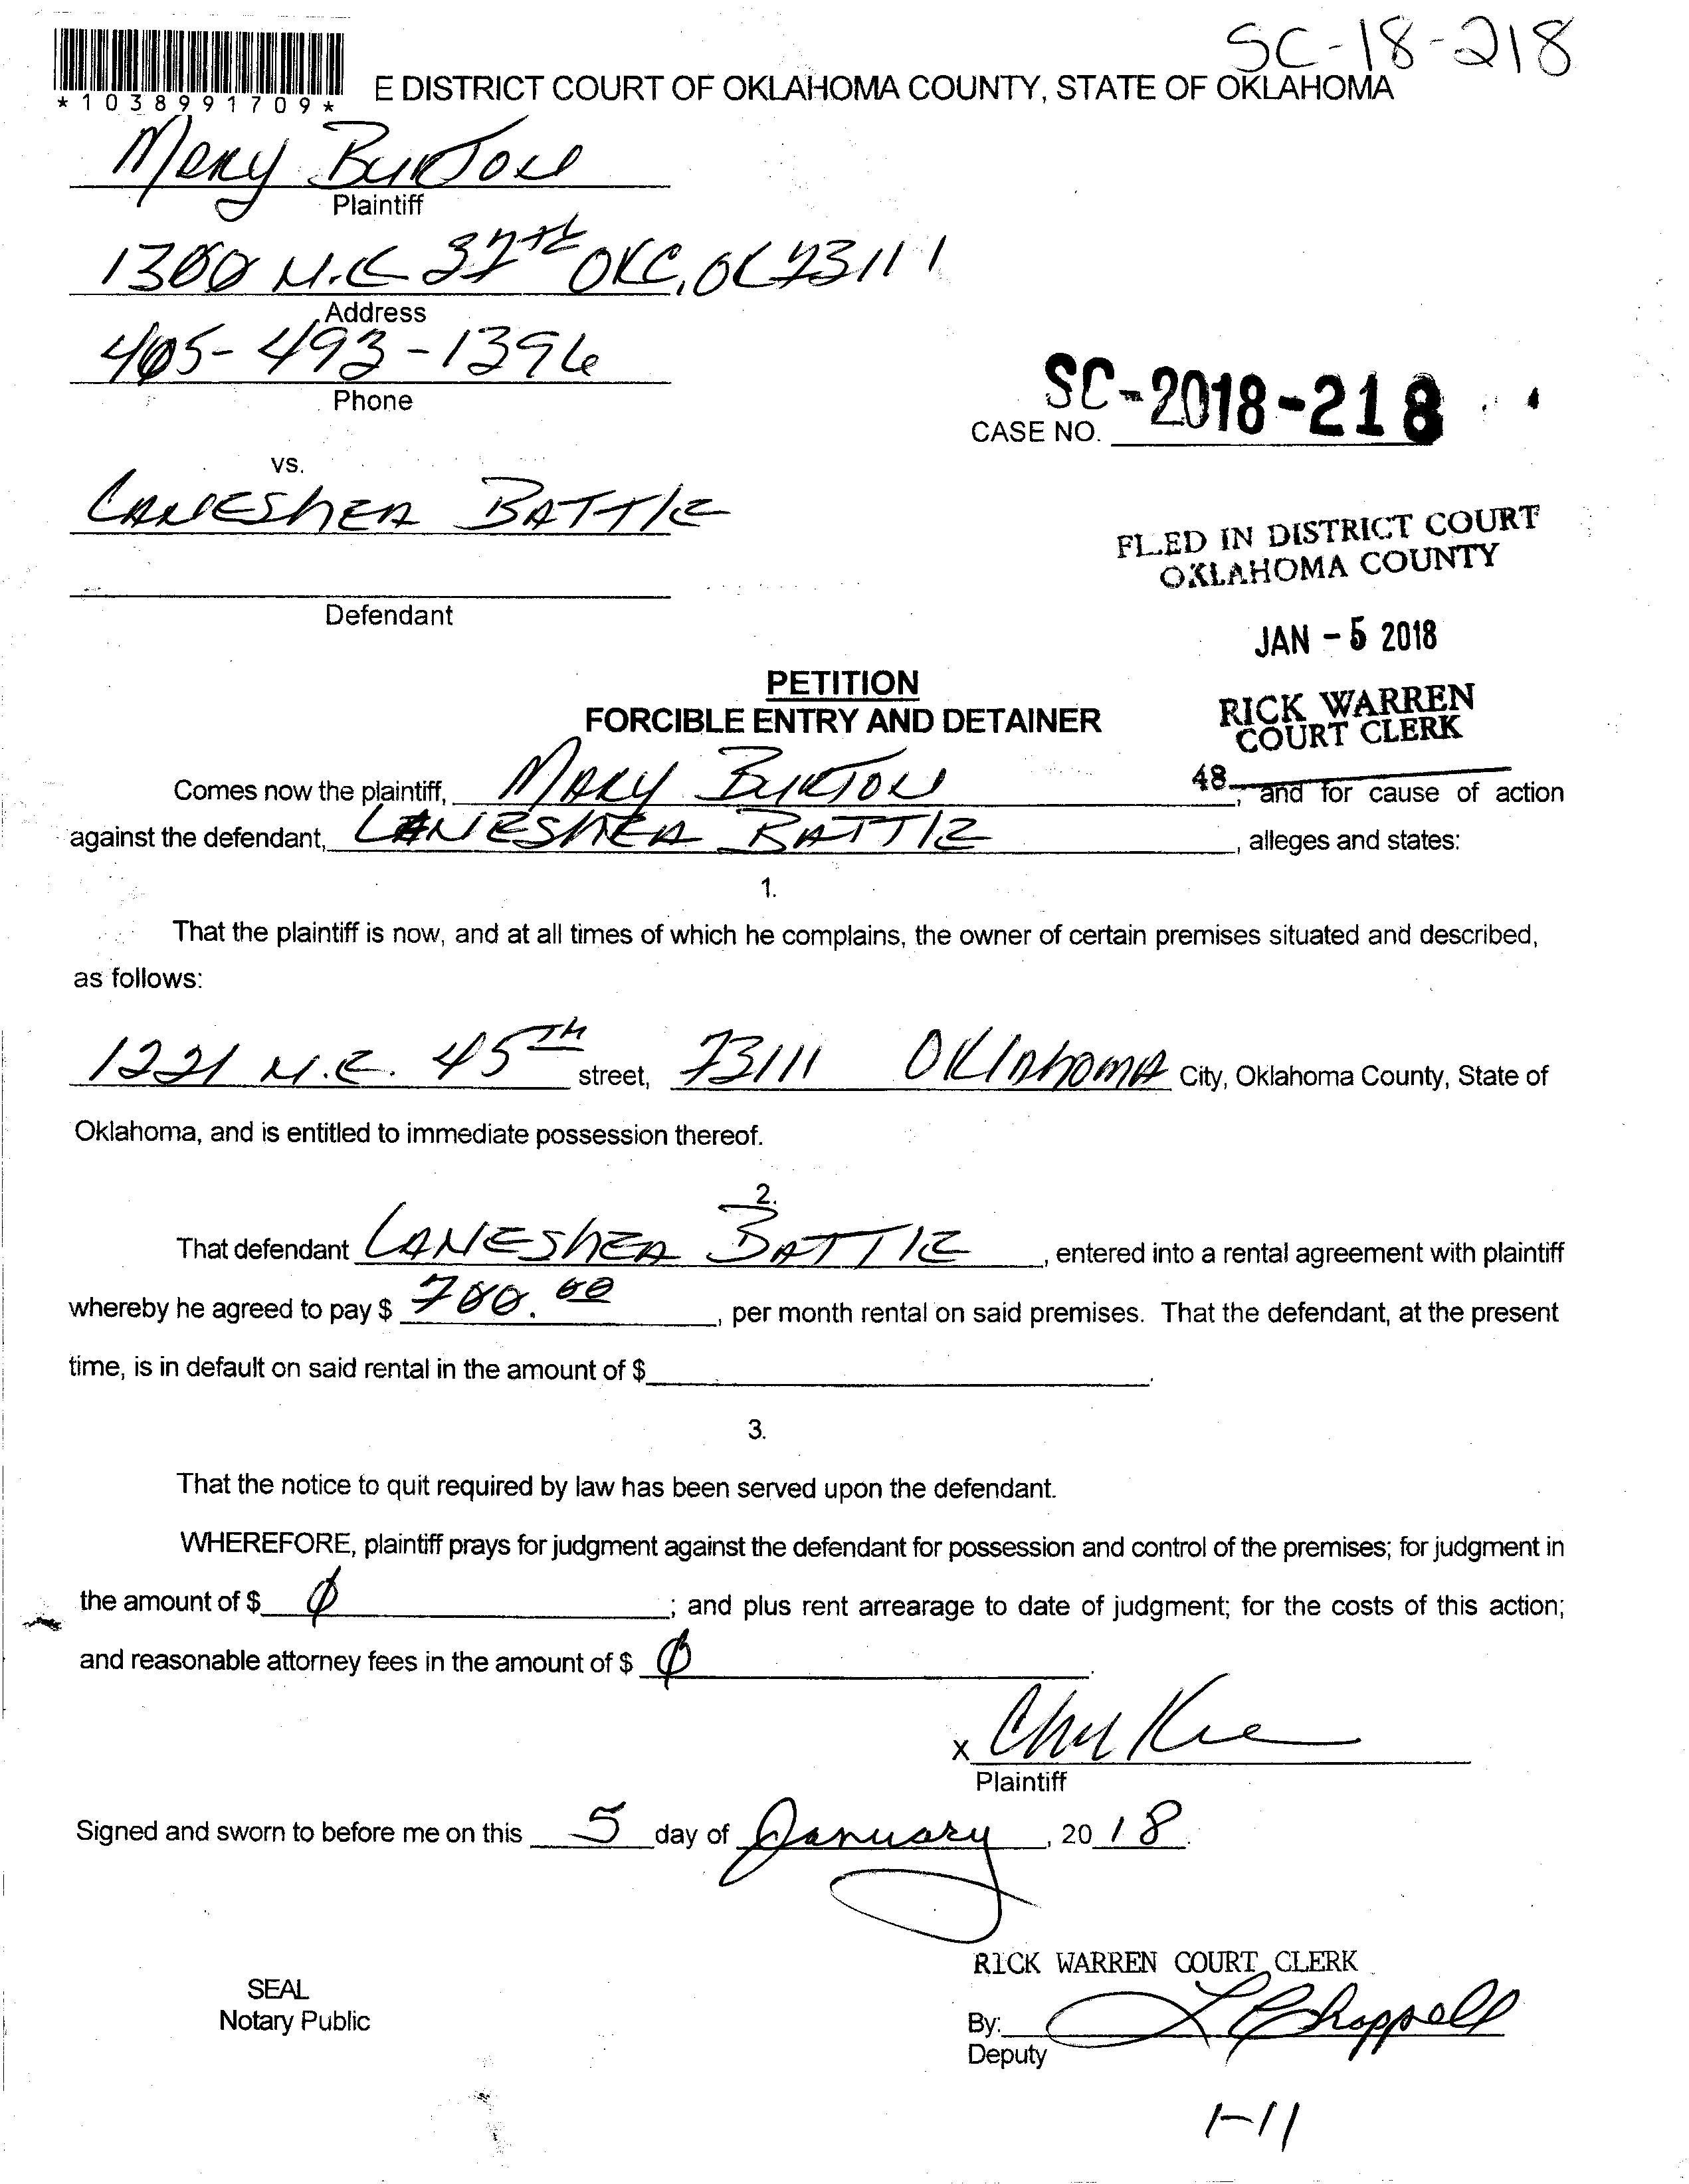 SC-18-218
*1038991709*
E DISTRICT COURT OF OKLAHOMA COUNTY, STATE OF OKLAHOMA
Mary Burton
Plaintiff
1300 N.E 37th OKC, OK 73111
Address
405-493-1396
Phone
SC-2018-218
CASE NO.
vs.
LANESHEA BATTLE
Defendant
FLED IN DISTRICT COURT
OKLAHOMA COUNTY
JAN - 5 2018
RICK WARREN
COURT CLERK
48
PETITION
FORCIBLE ENTRY AND DETAINER
Comes now the plaintiff, MARY BURTON, and for cause of action
against the defendant, LANESHEA BATTLE, alleges and states:
1.
That the plaintiff is now, and at all times of which he complains, the owner of certain premises situated and described,
as follows:
1221 N.E. 45TH street, 73111 OKlAhomA City, Oklahoma County, State of
Oklahoma, and is entitled to immediate possession thereof.
2.
That defendant LANESHEA BATTLE, entered into a rental agreement with plaintiff
whereby he agreed to pay $ 700.00, per month rental on said premises. That the defendant, at the present
time, is in default on said rental in the amount of $ .
3.
That the notice to quit required by law has been served upon the defendant.
WHEREFORE, plaintiff prays for judgment against the defendant for possession and control of the premises; for judgment in
the amount of $ 0; and plus rent arrearage to date of judgment; for the costs of this action;
and reasonable attorney fees in the amount of $ 0.
X
Plaintiff
Signed and sworn to before me on this 5 day of January, 20 18.
RICK WARREN COURT CLERK
SEAL
Notary Public
By: L Chappell
Deputy
1-11